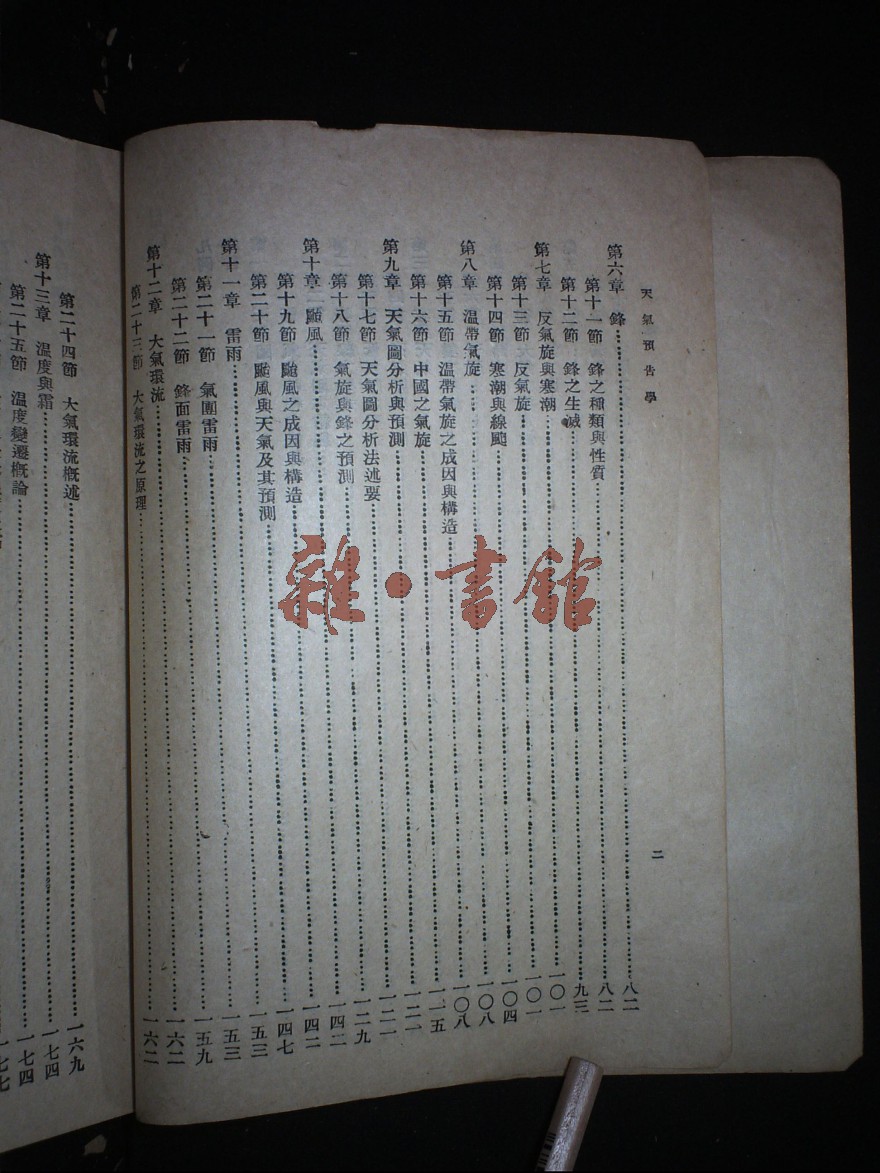 天氣預告學 二
第六章 鋒 八二
第十一節 鋒之種類與性質 八二
第十二節 鋒之生滅 九三
第七章 反氣旋與寒潮 一〇一
第十三節 反氣旋 一〇一
第十四節 寒潮與線颮 一〇四
第八章 溫帶氣旋 一〇八
第十五節 溫帶氣旋之成因與構造 一〇八
第十六節 中國之氣旋 一一五
第九章 天氣圖分析與預測 一二一
第十七節 天氣圖分析法述要 一二一
第十八節 氣旋與鋒之預測 一二九
第十章 颱風 一四二
第十九節 颱風之成因與構造 一四二
第二十節 颱風與天氣及其預測 一四七
第十一章 雷雨 一五三
第二十一節 氣團雷雨 一五三
第二十二節 鋒面雷雨 一五九
第十二章 大氣環流 一六二
第二十三節 大氣環流之原理 一六二
第二十四節 大氣環流概述 一六九
第十三章 溫度與霜 一七四
第二十五節 溫度變遷概論 一七四
一七七
雜·書館